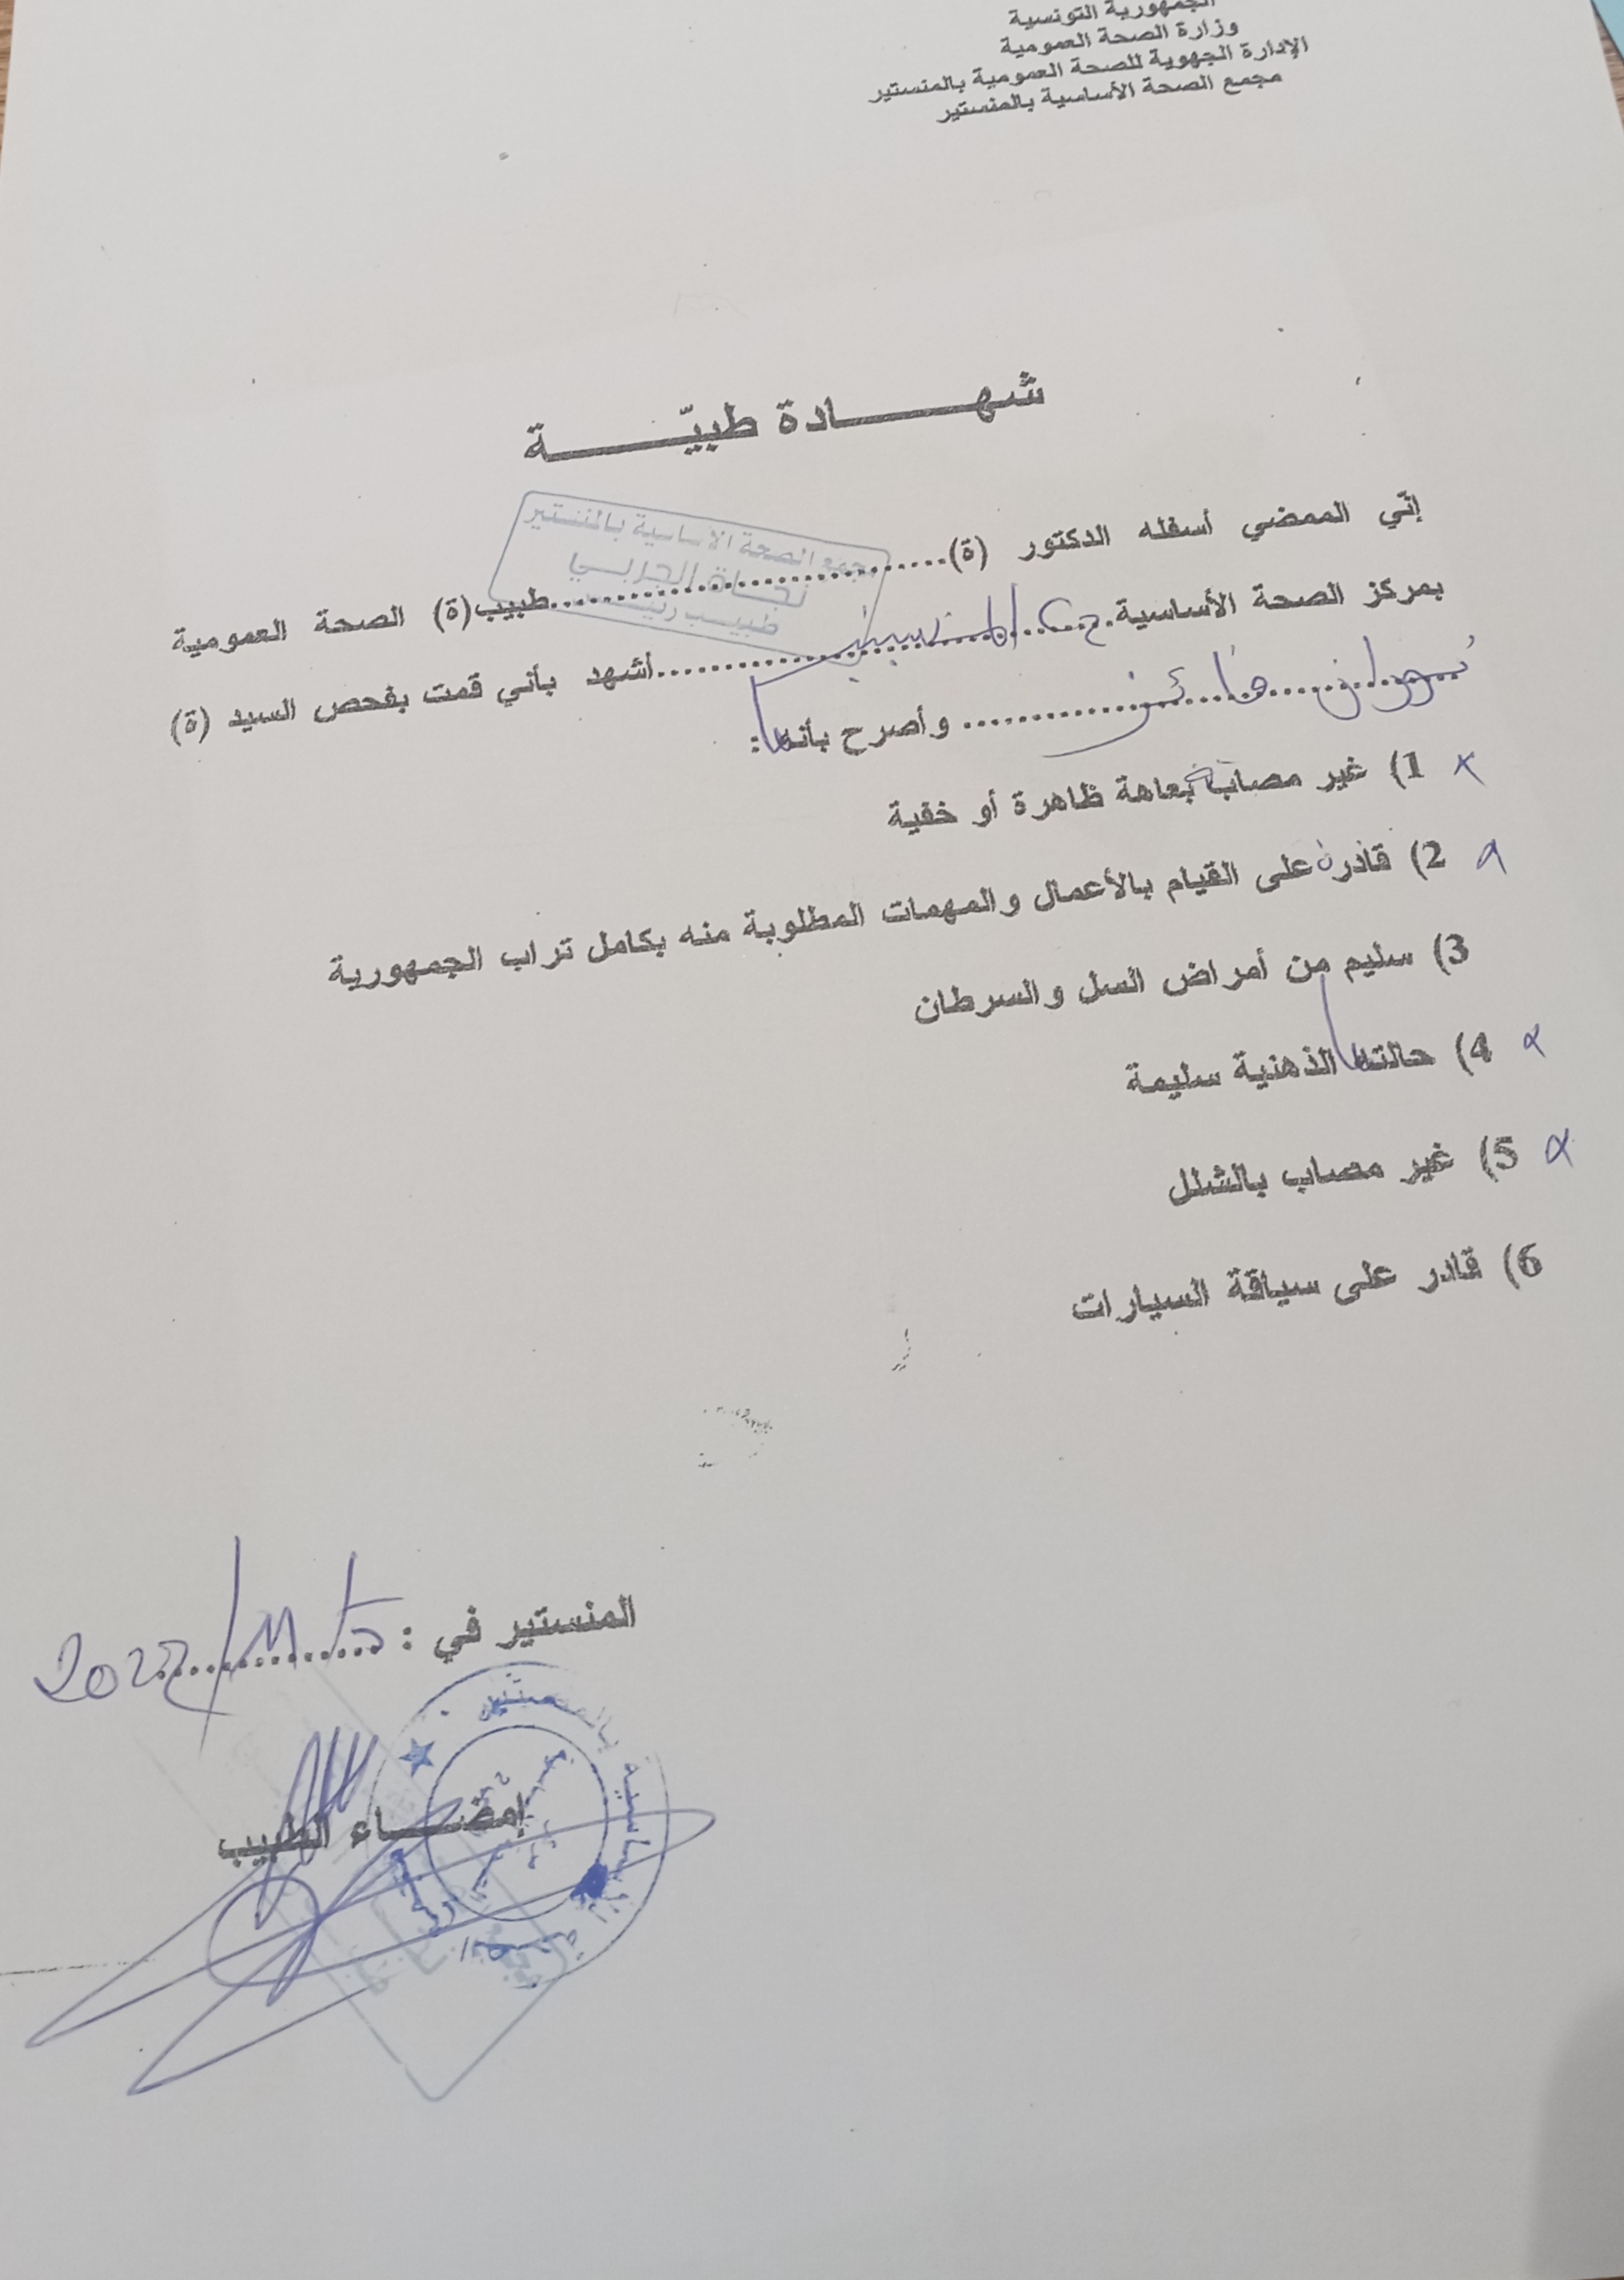 الجمهورية التونسية
وزارة الصحة العمومية
الإدارة الجهوية للصحة العمومية بالمنستير
مجمع الصحة الأساسية بالمنستير
شهـــــــادة طبيّـــــــة
إنّي الممضي أسفله الدكتور (ة)..............................طبيب(ة) الصحة العمومية
مجمع الصحة الاساسية بالمنستير
نجاة الجربي
طبيب رئيس
بمركز الصحة الأساسية..............................أشهد بأني قمت بفحص السيد (ة)
فائز .............................. وأصرح بأنها :
x 1) غير مصابة بعاهة ظاهرة أو خفية
2) قادرة على القيام بالأعمال والمهمات المطلوبة منه بكامل تراب الجمهورية
3) سليم من أمراض السل والسرطان
4) حالتها الذهنية سليمة
5) غير مصاب بالشلل
6) قادر على سياقة السيارات
المنستير في : ................
إمضـــــاء الطبيب